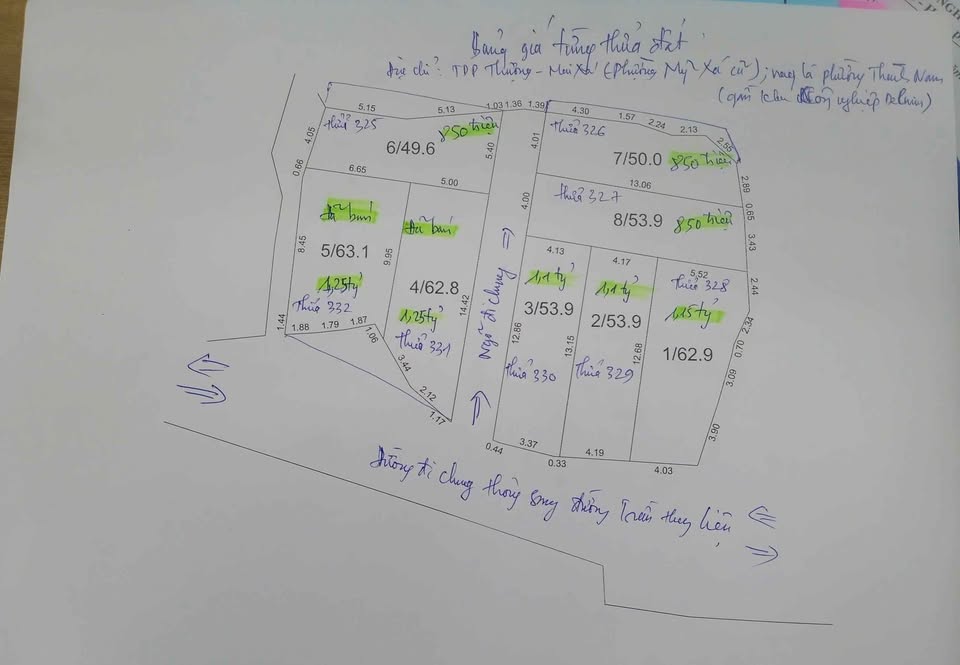 Bảng giá từng thửa đất
Địa chỉ: TDP Thượng - Mai Xá (Phường Mỹ Xá cũ); nay là phường Thành Nam
(gần khu công nghiệp
5.15 5.13 1.03 1.36 1.39 4.30 1.57 2.24 2.13 2.55
thửa 325 850 triệu
6/49.6
4.05 5.40 4.01
0.66 6.65 5.00
thửa 326
7/50.0 850 triệu
13.06 2.89
thửa 327
8/53.9 850 triệu
4.00 0.65 3.43
Đã bán
5/63.1
1,25 tỷ
Thửa 332
8.45 9.95
1.44 1.88 1.79 1.87 1.06
Đã bán
4/62.8
1,25 tỷ
thửa 331
14.42
3.44 2.12 1.17
Ngõ đi chung
4.13
1,1 tỷ
3/53.9
thửa 330
12.86 13.15
0.44 3.37 0.33
4.17
1,1 tỷ
2/53.9
thửa 329
12.68
4.19
5.52
thửa 328
1,15 tỷ
1/62.9
2.44 2.34 0.70 3.09 3.90
4.03
Đường đi chung thông sang đường Trần Huy Liệu